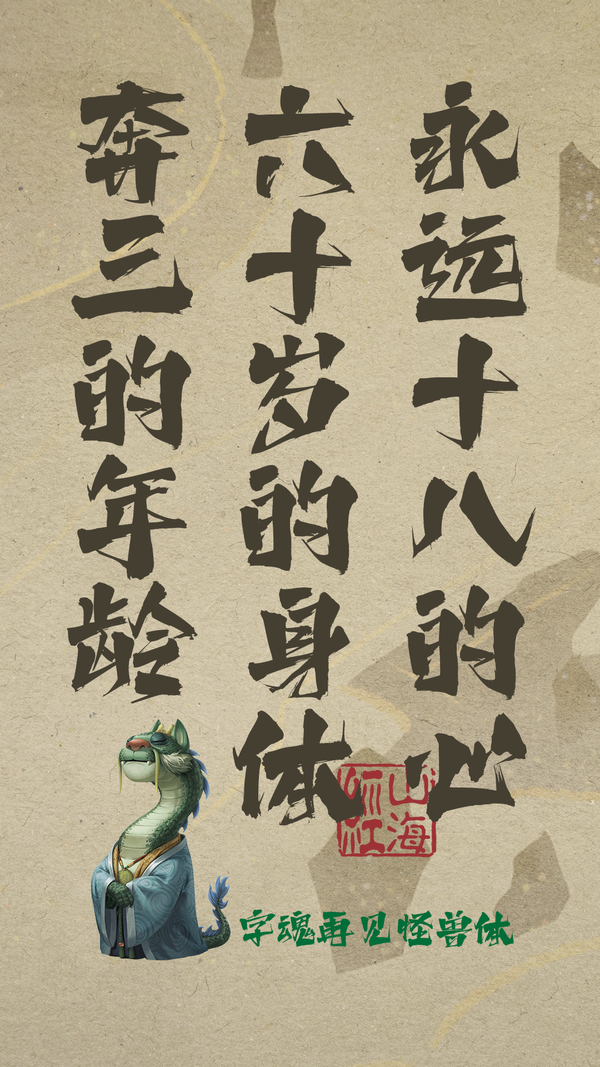 永远十八的心
六十岁的身体
奔三的年龄
山海
字魂再见怪兽体